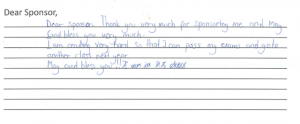 Dear Sponsor,
Dear sponsor. Thank you very much for sponsoring me and May
God bless you very much.
I am reading very hard so that I can pass my exams and go to
another class next year
May God bless you!!! I am in